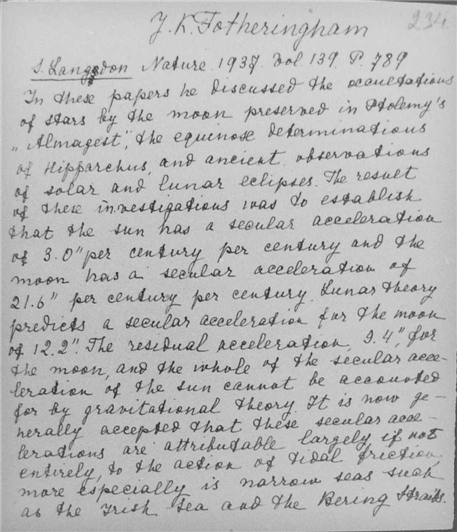 J. K. Fotheringham
234
S. Langdon Nature 1937. Vol 139. P. 789
In these papers he discussed the ocaultations
of stars by the moon preserved in Ptolemy's
„Almagest", the equinose determinations
of Hipparchus, and ancient observations
of solar and lunar eclipses. The result
of these investigations was to establish
that the sun has a secular acceleration
of 3.0" per century per century and the
moon has a secular acceleration of
21.6" per century per century. Lunar theory
predicts a secular acceleration for the moon
of 12.2". The residual acceleration, 9.4", for
the moon, and the whole of the secular acce-
leration of the sun cannot be accounted
for by gravitational theory. It is now ge-
nerally accepted that these secular acce-
lerations are attributable largely, if not
entirely, to the action of tidal friction,
more especially is narrow seas such
as the Irish Sea and the Bering Straits.